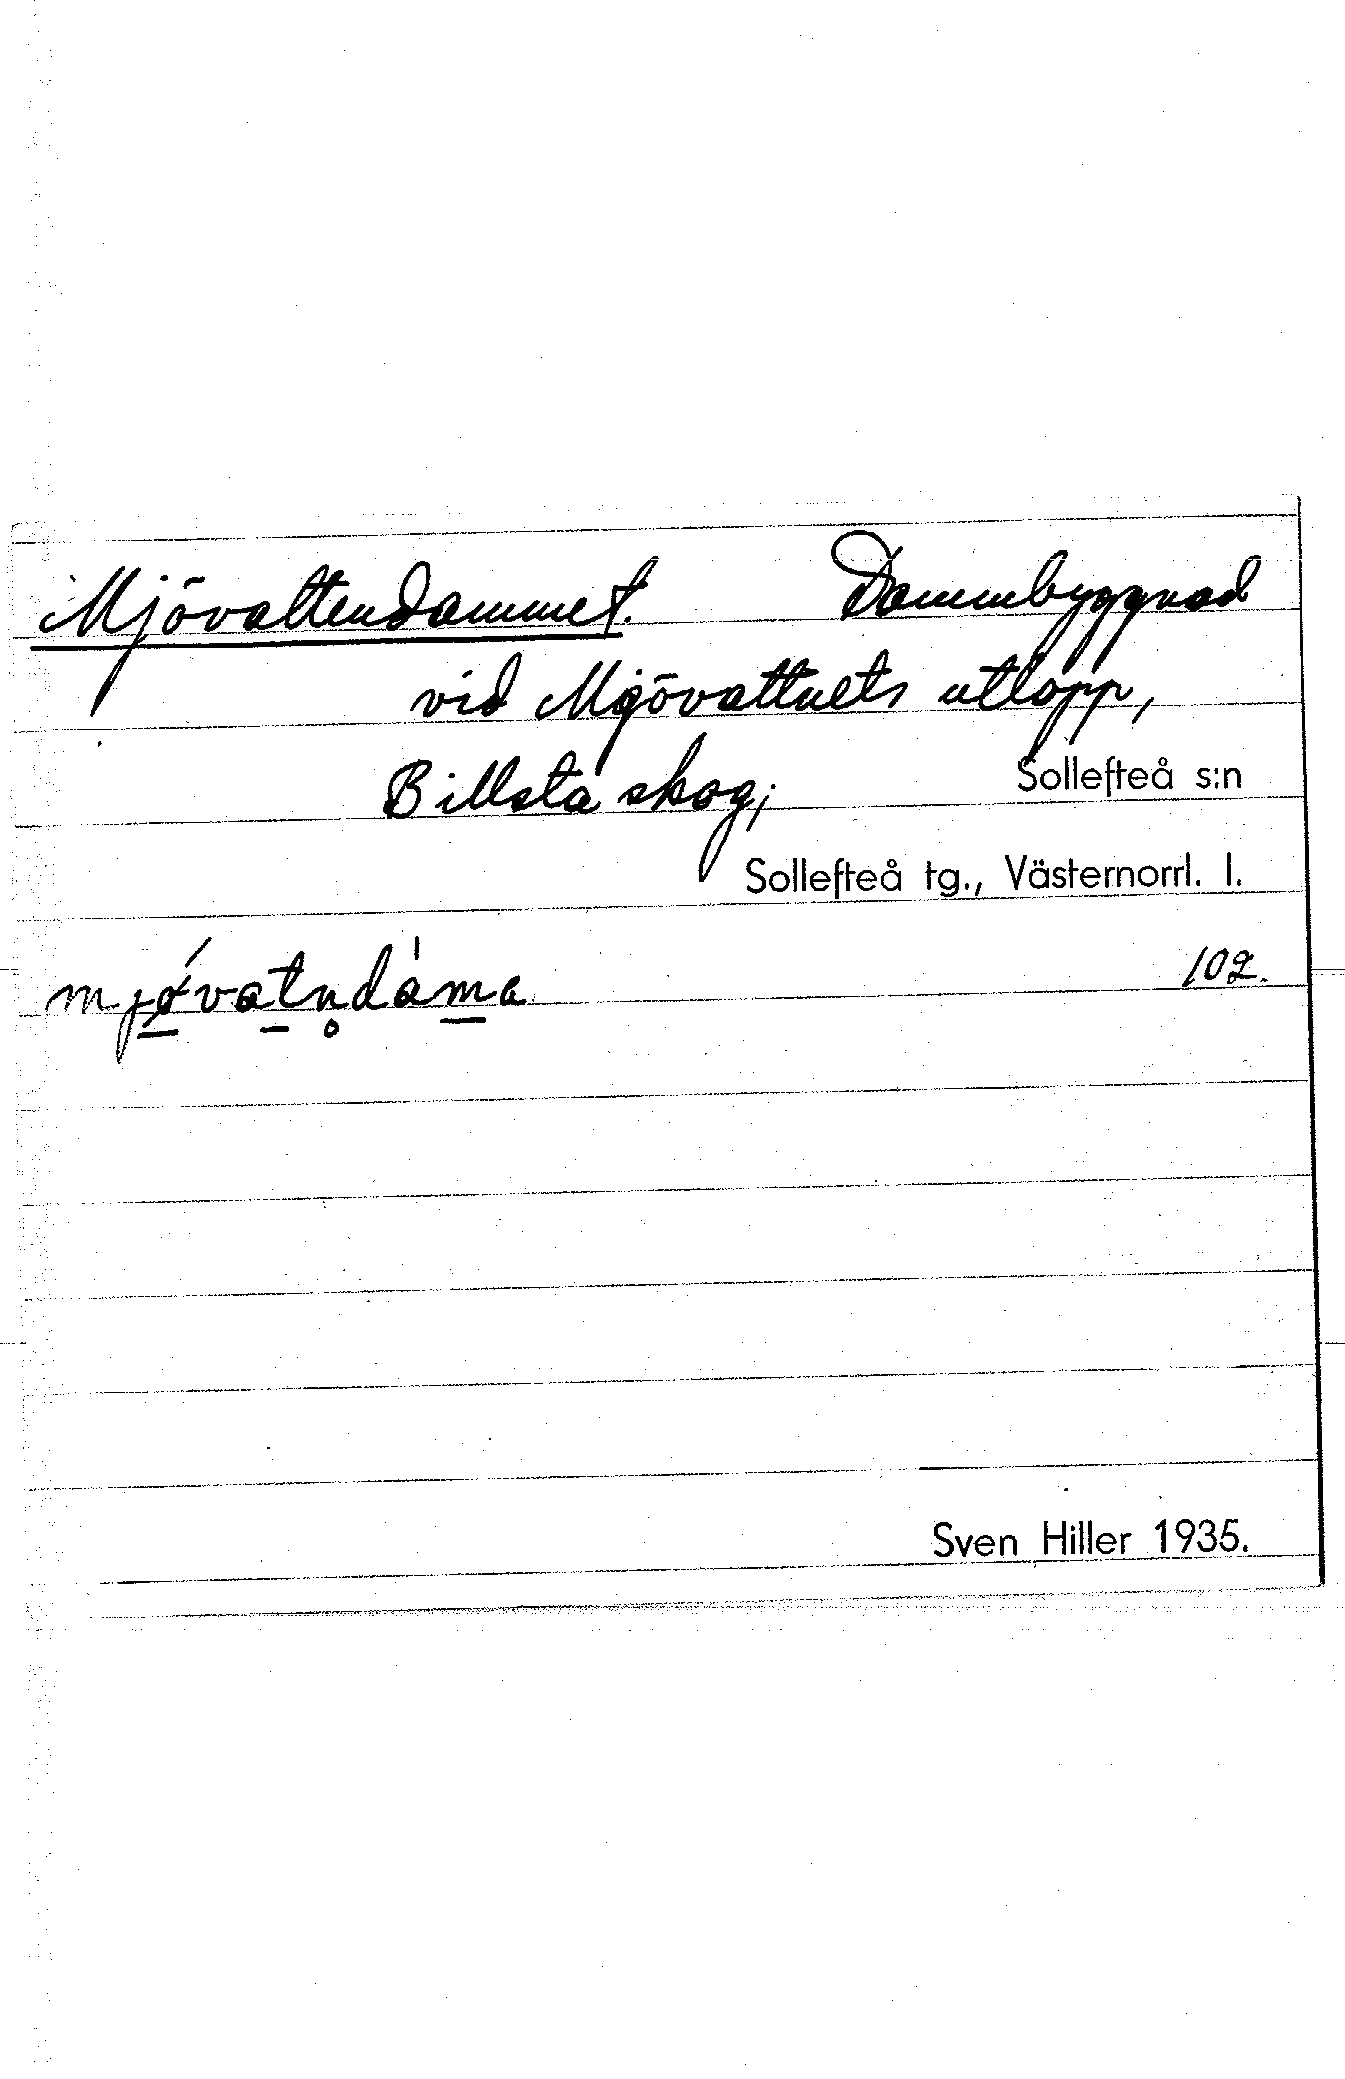 Mjövattendammet. Dammbyggnad
vid Mjövattnets utlopp,
Billsta skog; Sollefteå s:n
Sollefteå tg., Västernorrl. l.
mjǿ̱vat̲n̥dám̲a 102.
Sven Hiller 1935.